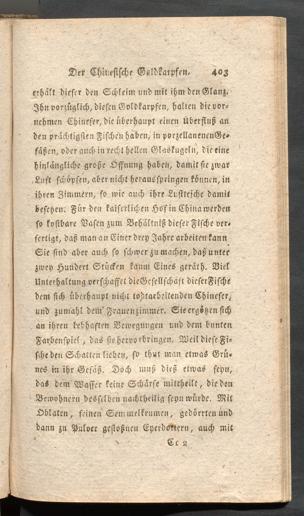 Der Chinesische Goldkarpfen. 403
erhält dieser den Schleim und mit ihm den Glanz.
Ihn vorzüglich, diesen Goldkarpfen, halten die vor-
nehmen Chineser, die überhaupt einen Überfluß an
den prächtigsten Fischen haben, in porzellanenen Ge-
fäßen, oder auch in recht hellen Glaskugeln, die eine
hinlängliche große Öffnung haben, damit sie zwar
Luft schöpfen, aber nicht herausspringen können, in
ihren Zimmern, so wie auch ihre Lustteiche damit
besetzen. Für den kaiserlichen Hof in China werden
so kostbare Vasen zum Behältniß dieser Fische ver-
fertigt, daß man an Einer drey Jahre arbeiten kann
Sie sind aber auch so schwer zu machen, daß unter
zwey Hundert Stücken kaum Eines geräth. Viel
Unterhaltung verschaffet die Gesellschaft dieser Fische
dem sich überhaupt nicht todtarbeitenden Chineser,
und zumahl dem Frauenzimmer. Sie ergötzen sich
an ihren lebhaften Bewegungen und dem bunten
Farbenspiel, das sie hervorbringen. Weil diese Fi-
sche den Schatten lieben, so thut man etwas Grü-
nes in ihr Gefäß. Doch muß dieß etwas seyn,
das dem Wasser keine Schärfe mittheilt, die den
Bewohnern desselben nachtheilig seyn würde. Mit
Oblaten, feinen Semmelkrumen, gedörrten und
dann zu Pulver gestoßnen Eyerdottern, auch mit
Cc 2